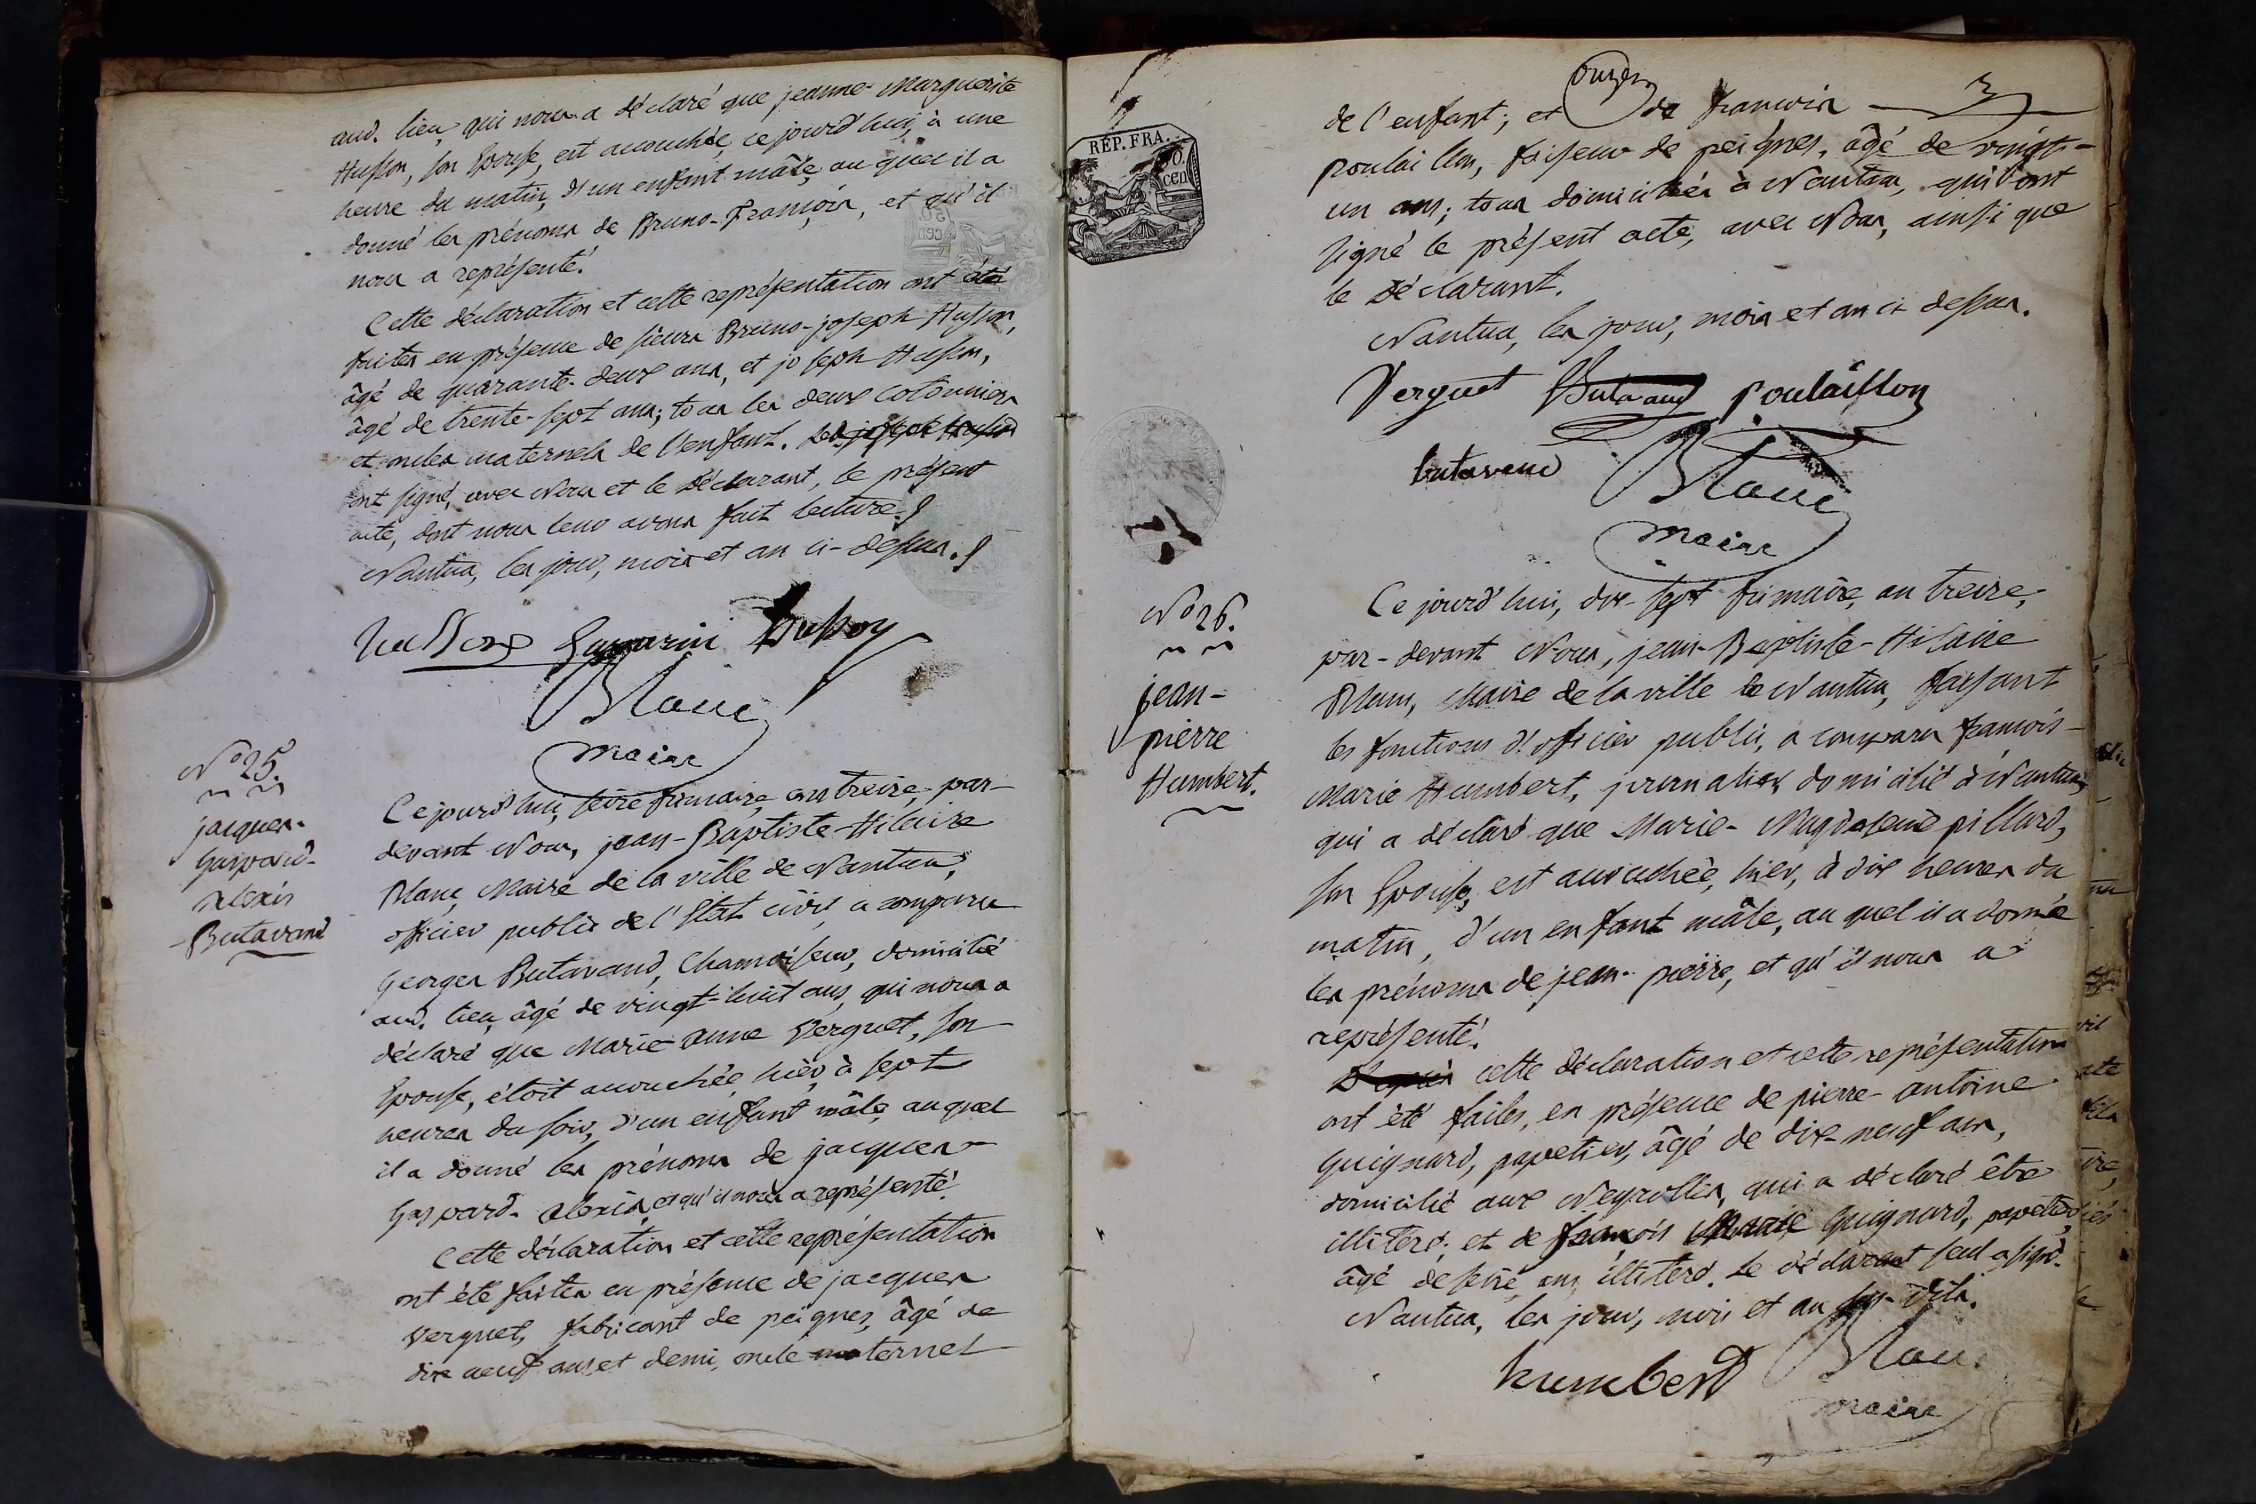 aud. lieu, qui nous a déclaré que jeanne Marguerite
Husson, son Epouse, est accouchée, ce jourd'hui, à une
heure du matin, d'un enfant mâle, au quel il a
donné les prénoms de Bruno-François, et qu'il
nous a représenté.
Cette déclaration et cette représentation ont été
faites en présence de sieurs Bruno-joseph Husson,
âgé de quarante-deux ans, et joseph Husson,
âgé de trente-sept ans; tous les deux Cotonniers
et oncles maternels de l'enfant. Led. joseph Husson
ont signé, avec Nous et le Déclarant, le présent
acte, dont nous leur avons fait lecture.
Nantua, les jour, mois et an ci-dessus.
husson husson
Blanc
maire
No 25.
jacques-
Gaspard-
Alexis
Butavand
Ce jourd'hui, seize frimaire, an treize, par-
devant Nous, jean-Baptiste-Hilaire
Blanc, Maire de la ville de Nantua,
officier public de l'Etat civil, a comparu
Georges Butavand, Chamoiseur, domicilié
aud. lieu, âgé de vingt-huit ans, qui nous a
déclaré que Marie anne Verguet, son
Epouse, étoit accouchée, hier, à sept
heures du soir, d'un enfant mâle, auquel
il a donné les prénoms de jacques
Gaspard-Alexis, et qu'il nous a représenté.
Cette déclaration et cette représentation
ont été faites en présence de jacques
Verguet, fabricant de peignes, âgé de
dix neuf ans et demi, oncle maternel
RÉP. FRA.
50.
cen
de l'enfant; et de francois
poulaillon, faiseur de peignes, âgé de vingt-
un ans; tous domiciliés à Nantua, qui ont
signé le présent acte, avec Nous, ainsi que
le Déclarant.
Nantua, les jour, mois et an ci dessus.
Verguet Butavand Poulaillon
butavand Blanc
maire
No 26.
jean-
pierre
Humbert.
Ce jourd'hui, dix-sept frimaire, an treize,
par-devant Nous, jean-Baptiste-Hilaire
Blanc, Maire de la ville de Nantua, faisant
les fonctions d'officier public, a comparu francois-
Marie Humbert, journalier, domicilié à Nantua,
qui a déclaré que Marie-Magdeleine pillard,
son Epouse, est accouchée, hier, à dix heures du
matin, d'un enfant mâle, au quel il a donné
les prénoms de jean-pierre, et qu'il nous a
représenté.
cette déclaration et cette représentation
ont été faites, en présence de pierre-antoine
Guignard, papetier, âgé de dix-neuf ans,
domicilié aux Neyrolles, qui a déclaré être
illitéré; et de francois Marie Guignard, papetier,
âgé de seize ans, illitéré. Le déclarant seul a signé.
Nantua, les jour, mois et an sus-dits.
humbert Blanc
maire